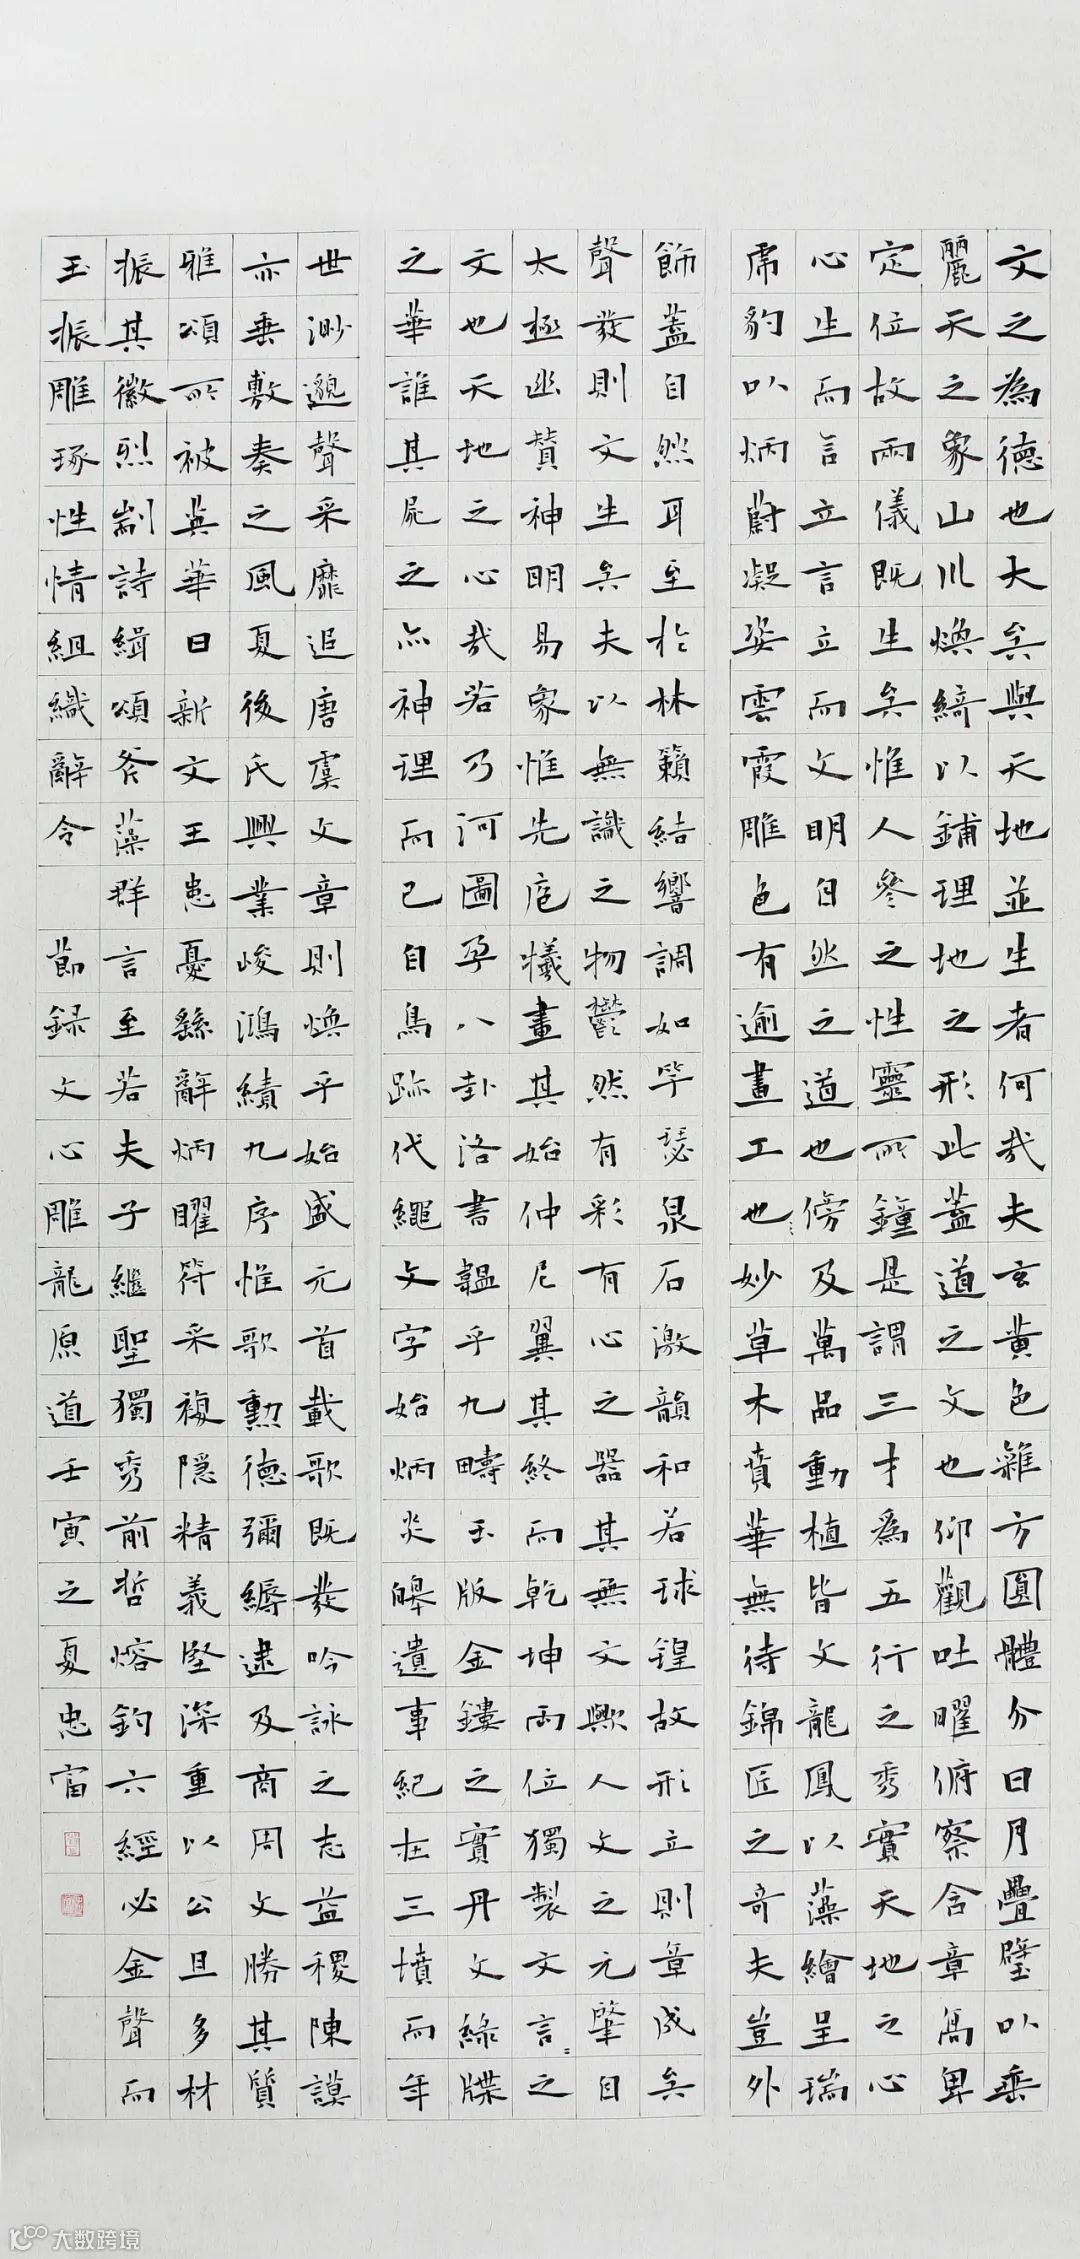 文之為德也大矣與天地並生者何哉夫玄黃色雜方圓體分日月疊璧以垂
麗天之象山川煥綺以鋪理地之形此蓋道之文也仰觀吐曜俯察含章高卑
定位故兩儀既生矣惟人參之性靈所鐘是謂三才為五行之秀實天地之心
心生而言立言立而文明自然之道也傍及萬品動植皆文龍鳳以藻繪呈瑞
虎豹以炳蔚凝姿雲霞雕色有逾畫工也妙草木賁華無待錦匠之奇夫豈外
飾蓋自然耳至於林籟結響調如竽瑟泉石激韻和若球鍠故形立則章成矣
聲發則文生矣夫以無識之物鬱然有彩有心之器其無文歟人文之元肇自
太極幽贊神明易象惟先庖犧畫其始仲尼翼其終而乾坤兩位獨製文言之
文也天地之心哉若乃河圖孕八卦洛書韞乎九疇玉版金鏤之實丹文綠牒
之華誰其屍之亦神理而已自鳥跡代繩文字始炳炎皞遺事紀在三墳而年
世渺邈聲采靡追唐虞文章則煥乎始盛元首載歌既發吟詠之志益稷陳謨
亦垂敷奏之風夏後氏興業峻鴻績九序惟歌勳德彌縟逮及商周文勝其質
雅頌所被英華日新文王患憂繇辭炳曜符采複隱精義堅深重以公旦多材
振其徽烈制詩緝頌斧藻群言至若夫子繼聖獨秀前哲熔鈞六經必金聲而
玉振雕琢性情組織辭令 節録文心雕龍原道壬寅之夏忠富
大数跨境